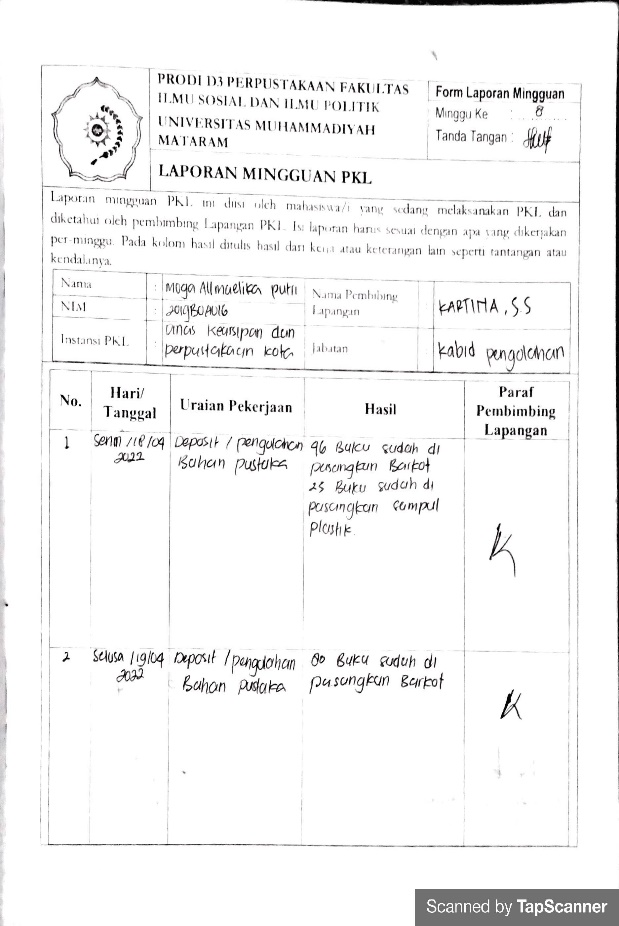 PRODI D3 PERPUSTAKAAN FAKULTAS
ILMU SOSIAL DAN ILMU POLITIK
UNIVERSITAS MUHAMMADIYAH
MATARAM
LAPORAN MINGGUAN PKL
Form Laporan Mingguan
Minggu Ke : 8
Tanda Tangan :
Laporan mingguan PKL ini diisi oleh mahasiswa/i yang sedang melaksanakan PKL dan
diketahui oleh pembimbing Lapangan PKL. Isi laporan harus sesuai dengan apa yang dikerjakan
per-minggu. Pada kolom hasil ditulis hasil dari kerja atau keterangan lain seperti tantangan atau
kendalanya.
Nama : Moga Allmaelika putri
NIM :
Instansi PKL : Dinas Kearsipan dan
perpustakaan kota
Nama Pembibing
Lapangan
KARTINA, S.S
Jabatan
Kabid pengolahan
No. Hari/ Tanggal Uraian Pekerjaan Hasil Paraf Pembimbing Lapangan
1 Senin /18/04
2022
Deposit / pengolahan
Bahan pustaka
96 Buku sudah di
pasangkan Barkot
25 Buku sudah di
pasangkan sampul
plastik.
2 Selasa /19/04
2022
Deposit / pengolahan
Bahan pustaka
80 Buku sudah di
pasangkan Barkot
Scanned by TapScanner